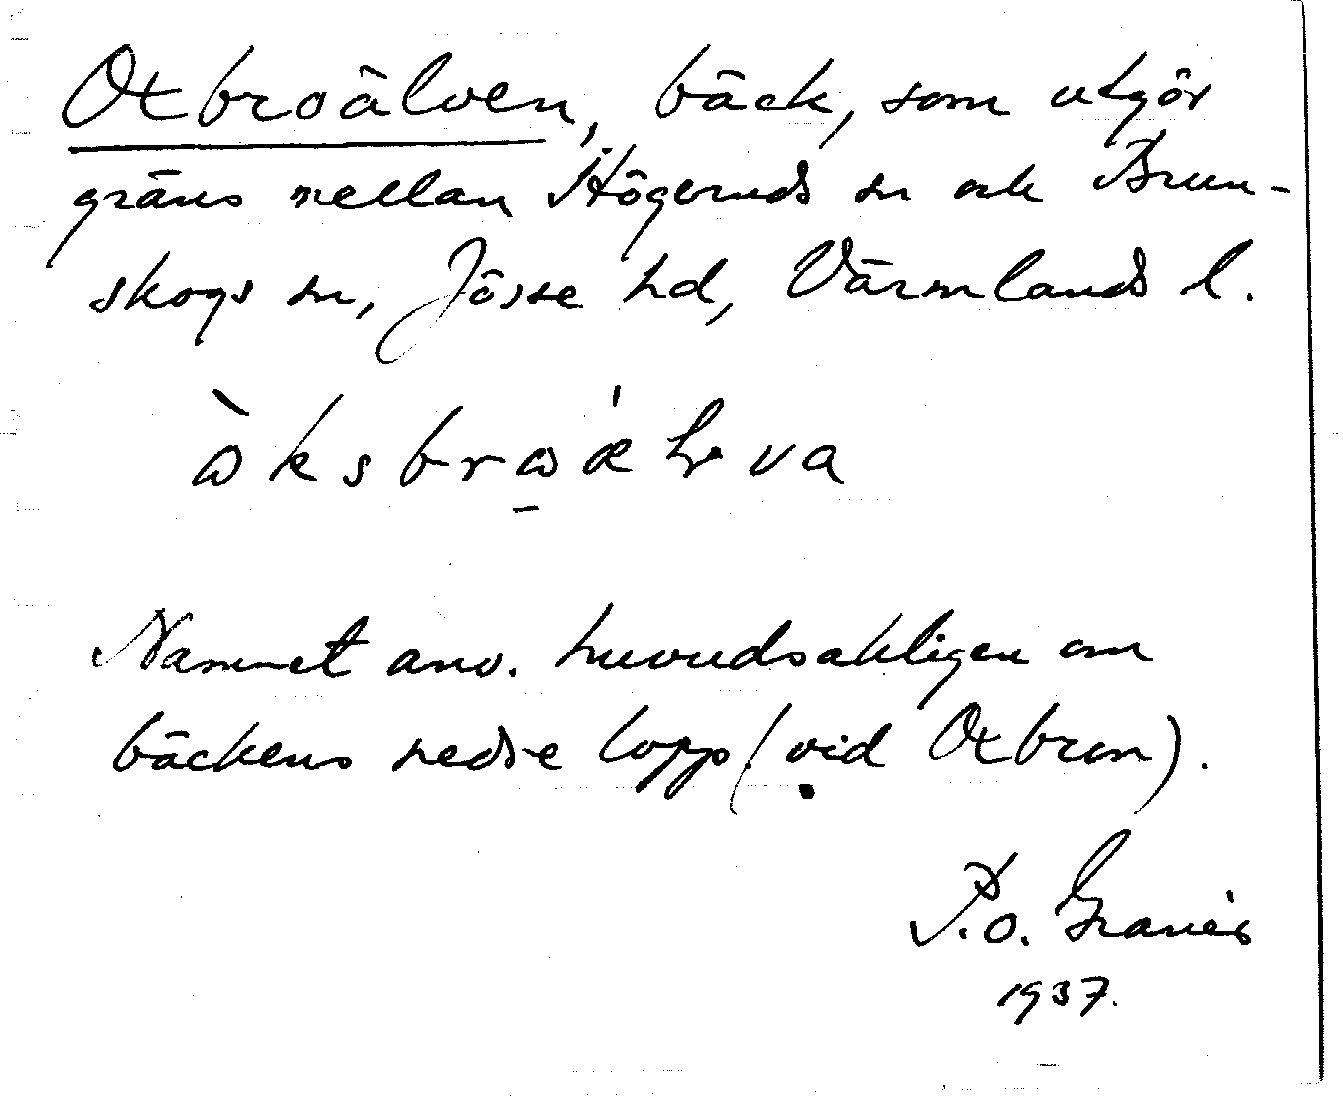 Oxbroälven, bäck, som utgör
gräns mellan Högeruds sn och Brun-
skogs sn, Jösse hd, Värmlands l.
Namnet anv. huvudsakligen om
bäckens nedre lopp (vid Oxbron).
P.O. Granér
1937.